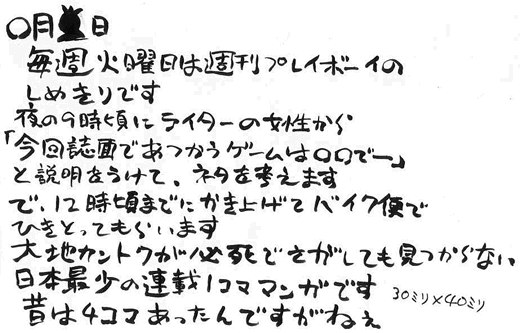 〇月 日
毎週火曜日は週刊プレイボーイの
しめきりです
夜の9時頃にライターの女性から
「今回誌面であつかうゲームは〇〇でー」
と説明をうけて、ネタを考えます
で、12時頃までにかき上げてバイク便で
ひきとってもらいます
大地カントクが必死でさがしても見つからない
日本最少の連載1コママンガです
30ミリ×40ミリ
昔は4コマあったんですがねぇ